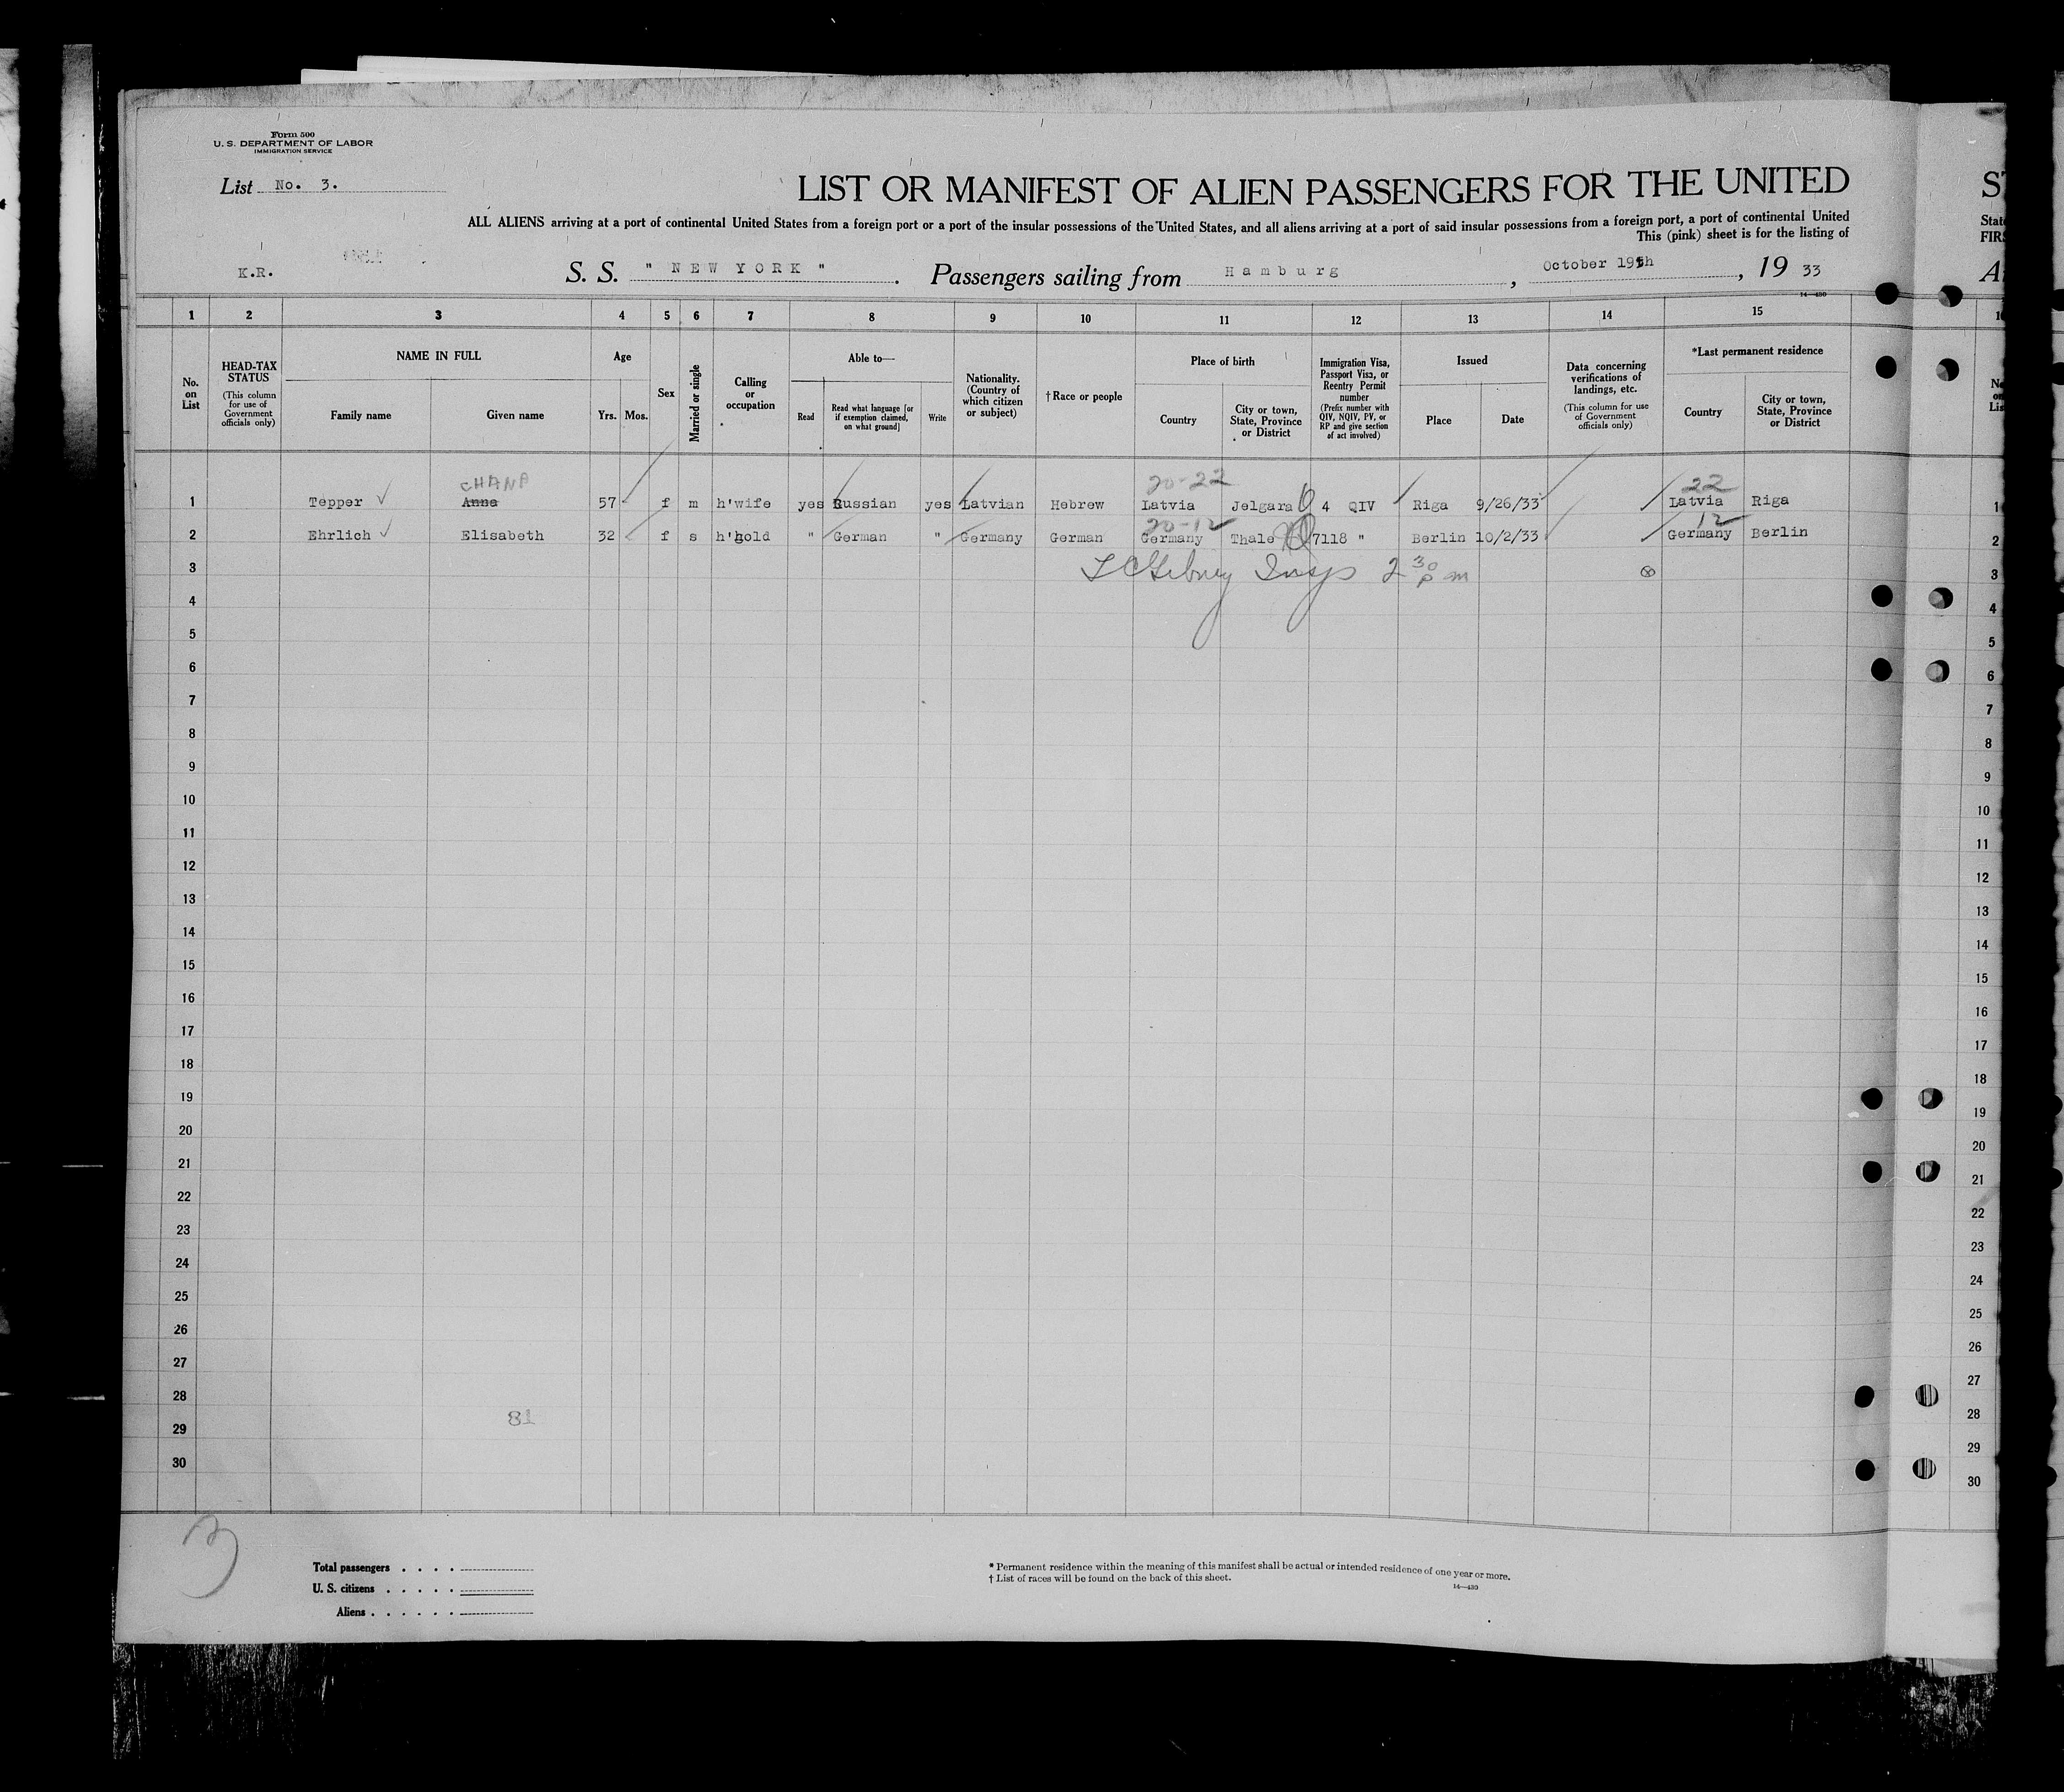 Form 500
U. S. DEPARTMENT OF LABOR
IMMIGRATION SERVICE
List No. 3.
LIST OR MANIFEST OF ALIEN PASSENGERS FOR THE UNITED
ALL ALIENS arriving at a port of continental United States from a foreign port or a port of the insular possessions of the United States, and all aliens arriving at a port of said insular possessions from a foreign port, a port of continental United
This (pink) sheet is for the listing of
K.R.
S. S. " NEW YORK " . Passengers sailing from Hamburg , October 19th , 19 33
14—430
1 2 3 4 5 6 7 8 9 10 11 12 13 14 15
No. on List
HEAD-TAX STATUS (This column for use of Government officials only)
NAME IN FULL
Family name Given name
Age
Yrs. Mos.
Sex
Married or single
Calling or occupation
Able to—
Read Read what language [or if exemption claimed, on what ground] Write
Nationality. (Country of which citizen or subject)
†Race or people
Place of birth
Country City or town, State, Province or District
Immigration Visa, Passport Visa, or Reentry Permit number (Prefix number with QIV, NQIV, PV, or RP and give section of act involved)
Issued
Place Date
Data concerning verifications of landings, etc. (This column for use of Government officials only)
*Last permanent residence
Country City or town, State, Province or District
CHANA 20-22 22
1 Tepper Anna 57 f m h'wife yes Russian yes Latvian Hebrew Latvia Jelgara 4 QIV Riga 9/26/33 Latvia Riga 1
20-12 12
2 Ehrlich Elisabeth 32 f s h'hold " German " Germany German Germany Thale 7118 " Berlin 10/2/33 Germany Berlin 2
3 Insp 2 30 pm 3
4 4
5 5
6 6
7 7
8 8
9 9
10 10
11 11
12 12
13 13
14 14
15 15
16 16
17 17
18 18
19 19
20 20
21 21
22 22
23 23
24 24
25 25
26 26
27 27
28 28
81
29 29
30 30
3
Total passengers
U. S. citizens
Aliens
* Permanent residence within the meaning of this manifest shall be actual or intended residence of one year or more.
† List of races will be found on the back of this sheet.
14—430